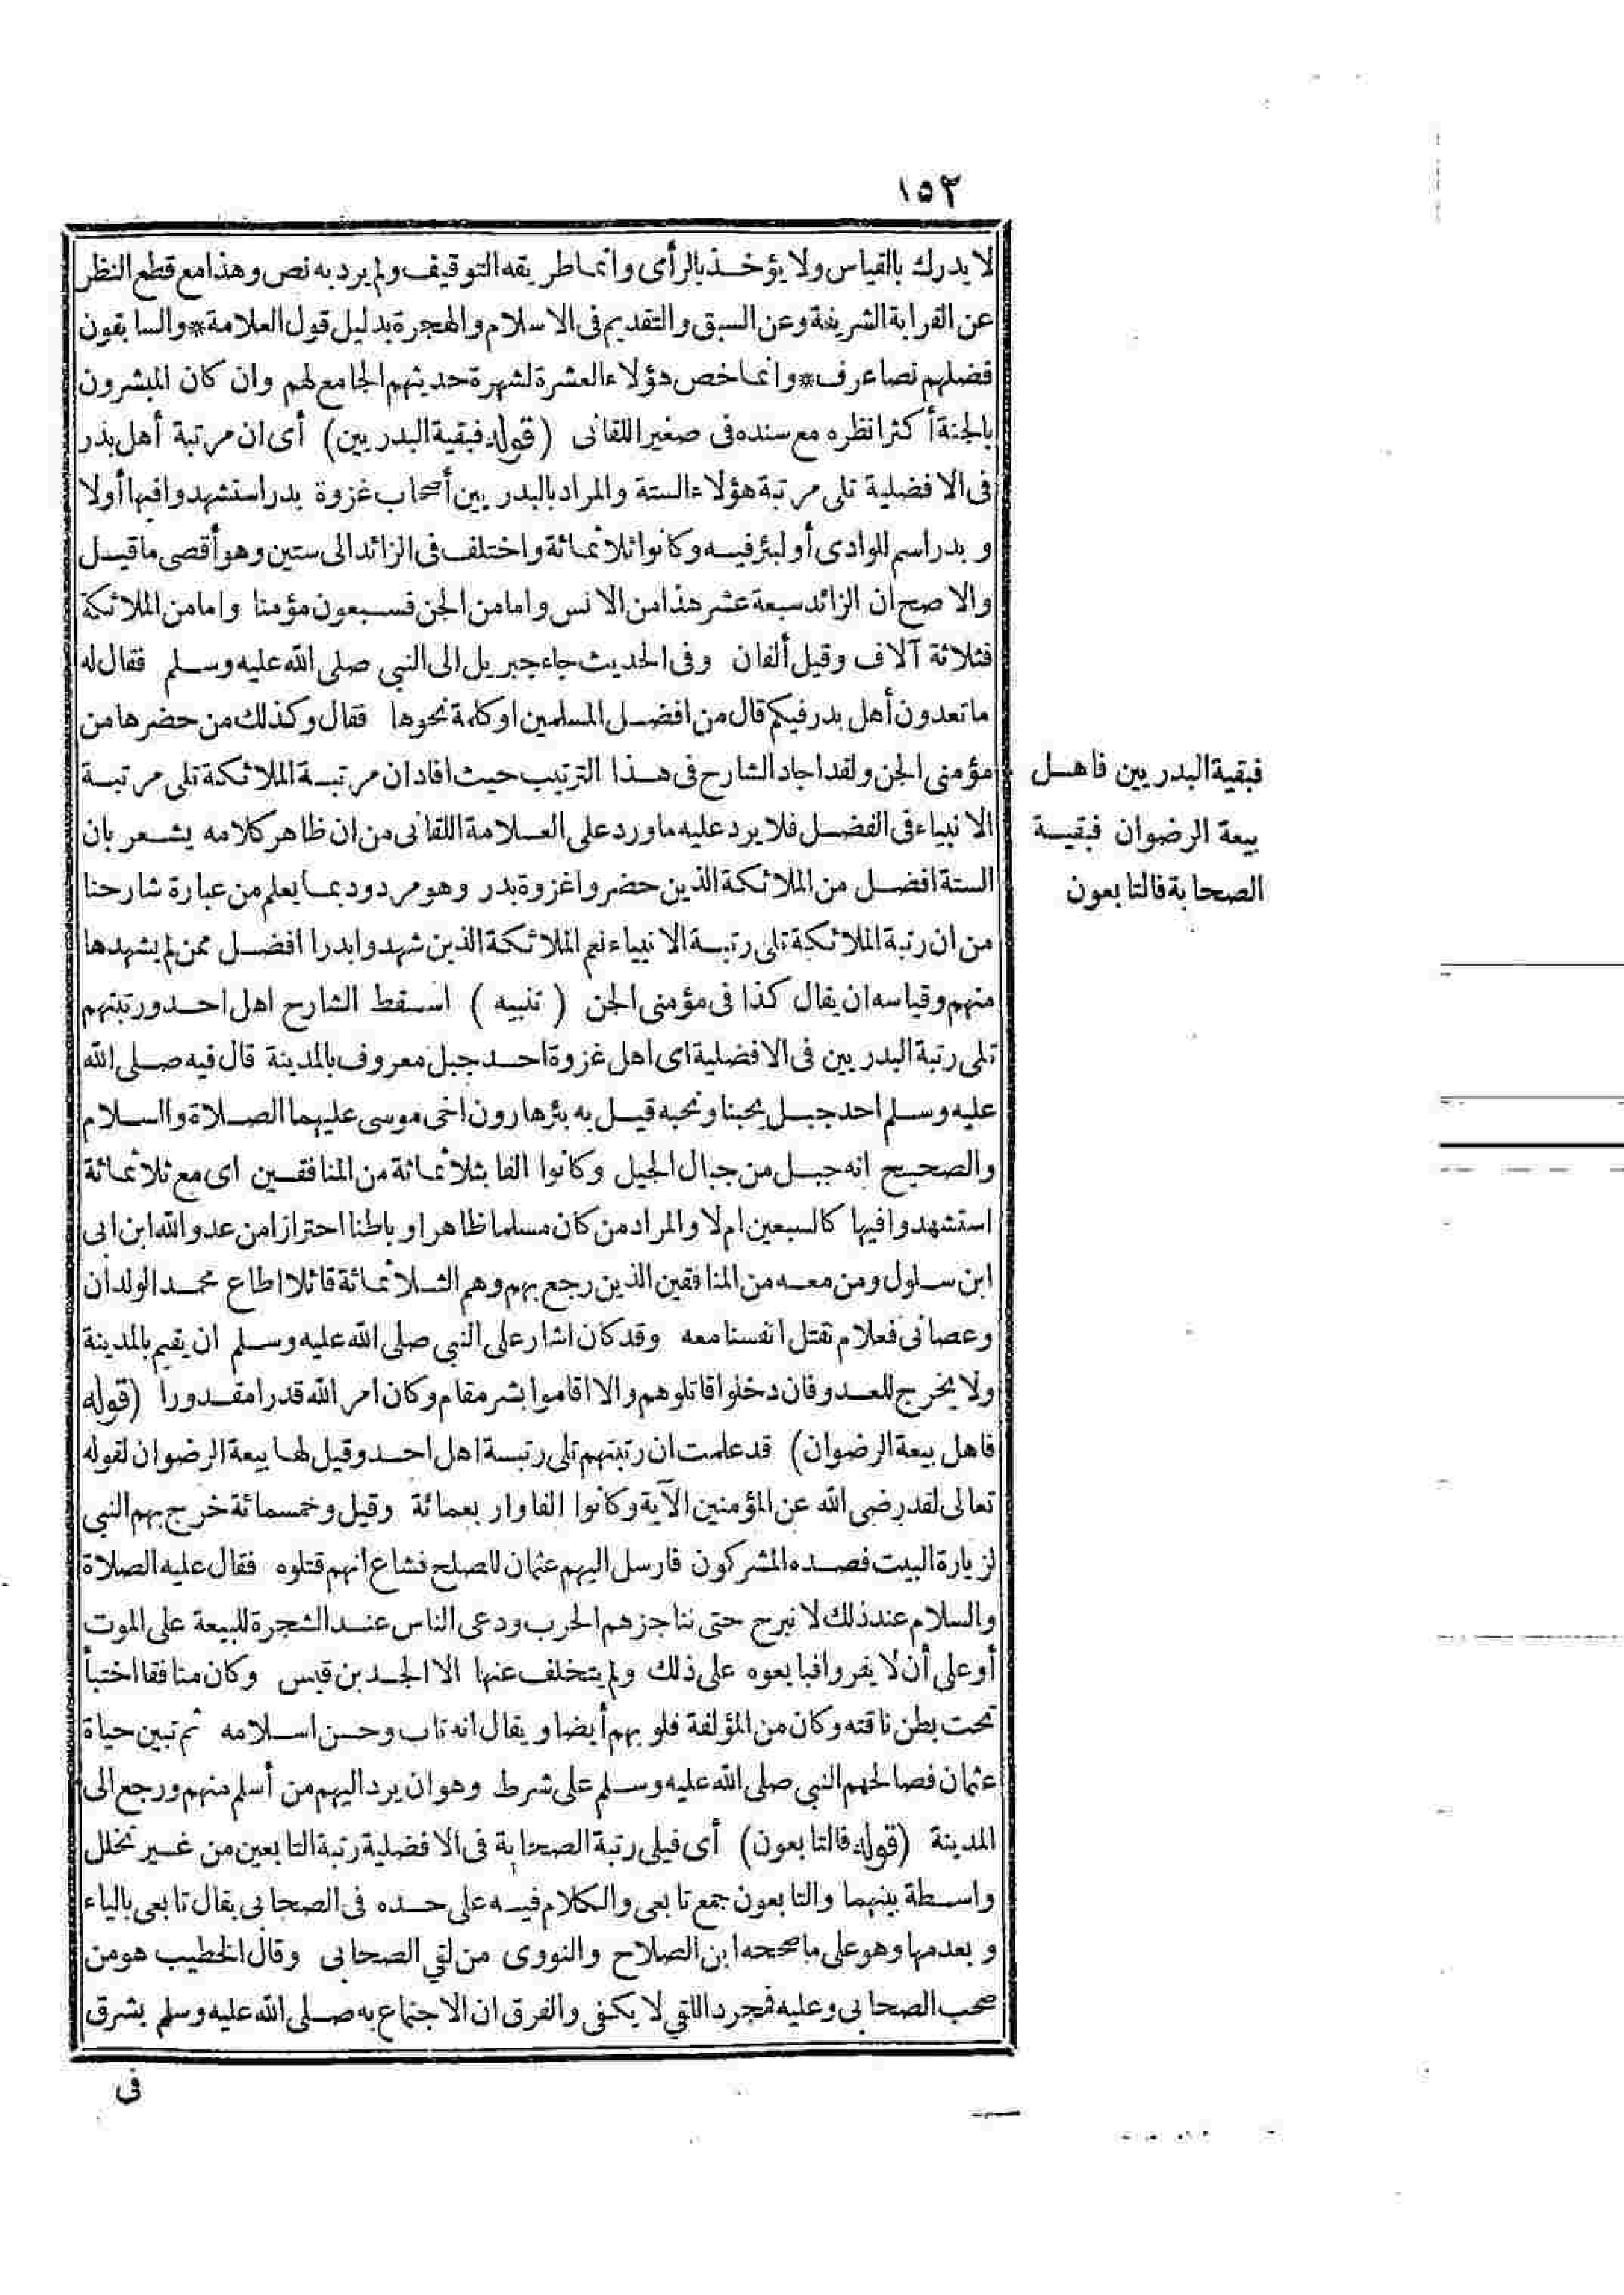 ١٥٢
لا يدرك بالقياس ولا يؤخذ بالرأى وانما طريقه التوقيف ولم يرد به نص وهذا مع قطع النظر
عن القرابة الشريفة وعن السبق والتقديم فى الاسلام والهجرة بدليل قول العلامة * والسابقون
فضلهم نصا عرف * وانما خص هؤلاء العشرة لشهرة حديثهم الجامع لهم وان كان المبشرون
بالجنة أكثر انظره مع سنده فى صغير اللقانى (قوله فبقية البدريين) أى ان مرتبة أهل بدر
فى الافضلية تلى مرتبة هؤلاء الستة والمراد بالبدريين أصحاب غزوة بدر استشهدوا فيها أولا
وبدر اسم للوادى أو لبئر فيه وكانوا ثلاثمائة واختلف فى الزائد الى ستين وهو أقصى ما قيل
والاصح ان الزائد سبعة عشر هذا من الانس واما من الجن فسبعون مؤمنا واما من الملائكة
فثلاثة آلاف وقيل ألفان وفى الحديث جاء جبريل الى النبى صلى الله عليه وسلم فقال له
ما تعدون أهل بدر فيكم قال من افضل المسلمين او كلمة نحوها فقال وكذلك من حضرها من
مؤمنى الجن ولقد اجاد الشارح فى هذا الترتيب حيث افاد ان مرتبة الملائكة تلى مرتبة
الانبياء فى الفضل فلا يرد عليه ما ورد على العلامة اللقانى من ان ظاهر كلامه يشعر بان
الستة افضل من الملائكة الذين حضروا غزوة بدر وهو مردود بما يعلم من عبارة شارحنا
من ان رتبة الملائكة تلى رتبة الانبياء نعم الملائكة الذين شهدوا بدرا افضل ممن لم يشهدها
منهم وقياسه ان يقال كذا فى مؤمنى الجن (تنبيه) اسقط الشارح اهل احد ورتبتهم
تلى رتبة البدريين فى الافضلية اى اهل غزوة احد جبل معروف بالمدينة قال فيه صلى الله
عليه وسلم احد جبل يحبنا ونحبه قيل به بئر هارون اخى موسى عليهما الصلاة والسلام
والصحيح انه جبل من جبال الجيل وكانوا الفا بثلاثمائة من المنافقين اى مع ثلاثمائة
استشهدوا فيها كالسبعين ام لا والمراد من كان مسلما ظاهرا وباطنا احترازا من عدو الله ابن ابى
ابن سلول ومن معه من المنافقين الذين رجع بهم وهم الثلاثمائة قائلا اطاع محمد الولدان
وعصانى فعلام نقتل انفسنا معه وقد كان اشار على النبى صلى الله عليه وسلم ان يقيم بالمدينة
ولا يخرج للعدو فان دخلوا قاتلوهم والا اقاموا بشر مقام وكان امر الله قدرا مقدورا (قوله
فاهل بيعة الرضوان) قد علمت ان رتبتهم تلى رتبة اهل احد وقيل لها بيعة الرضوان لقوله
تعالى لقد رضى الله عن المؤمنين الآية وكانوا الفا واربعمائة وقيل وخمسمائة خرج بهم النبى
لزيارة البيت فصده المشركون فارسل اليهم عثمان للصلح فشاع انهم قتلوه فقال عليه الصلاة
والسلام عند ذلك لا نبرح حتى نناجزهم الحرب ودعى الناس عند الشجرة للبيعة على الموت
أو على أن لا يفروا فبايعوه على ذلك ولم يتخلف عنها الا الجد بن قيس وكان منافقا اختبأ
تحت بطن ناقته وكان من المؤلفة قلوبهم أيضا ويقال انه تاب وحسن اسلامه ثم تبين حياة
عثمان فصالحهم النبى صلى الله عليه وسلم على شرط وهو ان يرد اليهم من أسلم منهم ورجع الى
المدينة (قوله فالتابعون) أى فيلى رتبة الصحابة فى الافضلية رتبة التابعين من غير تخلل
واسطة بينهما والتابعون جمع تابعى والكلام فيه على حده فى الصحابى يقال تابعى بالياء
وبعدمها وهو على ما صححه ابن الصلاح والنووى من لقى الصحابى وقال الخطيب هو من
صحب الصحابى وعليه فمجرد اللقى لا يكفى والفرق ان الاجتماع به صلى الله عليه وسلم يشرق
فى
فبقية البدريين فاهل
بيعة الرضوان فبقية
الصحابة فالتابعون